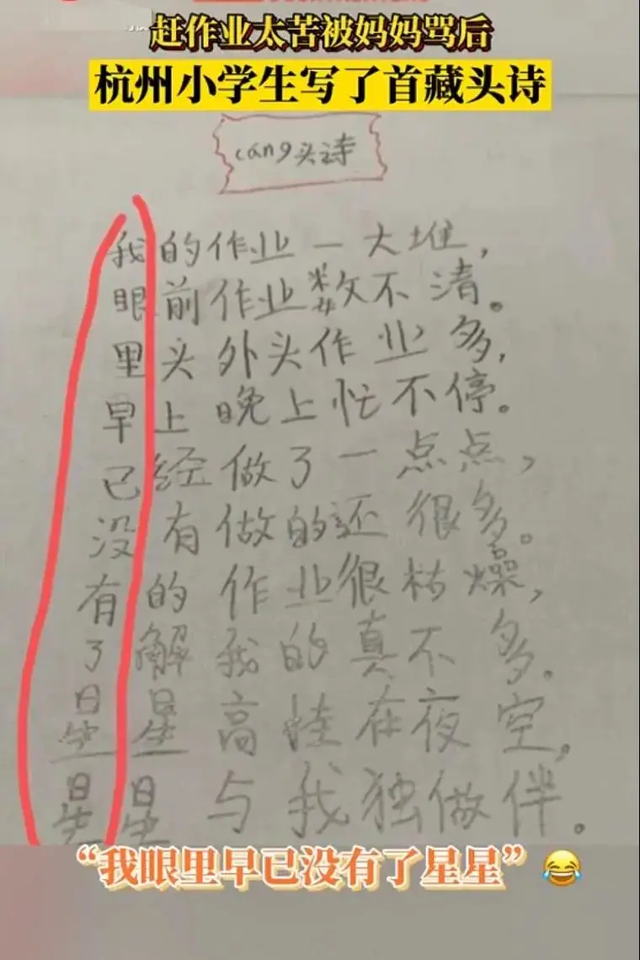 赶作业太苦被妈妈骂后
杭州小学生写了首藏头诗
cang头诗
我的作业一大堆，
眼前作业数不清。
里头外头作业多，
早上晚上忙不停。
已经做了一点点，
没有做的还很多。
有的作业很枯燥，
了解我的真不多。
星星高挂在夜空，
星星与我独做伴。
“我眼里早已没有了星星”😂